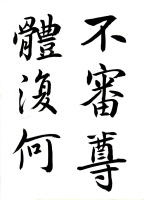 不審尊
體復何